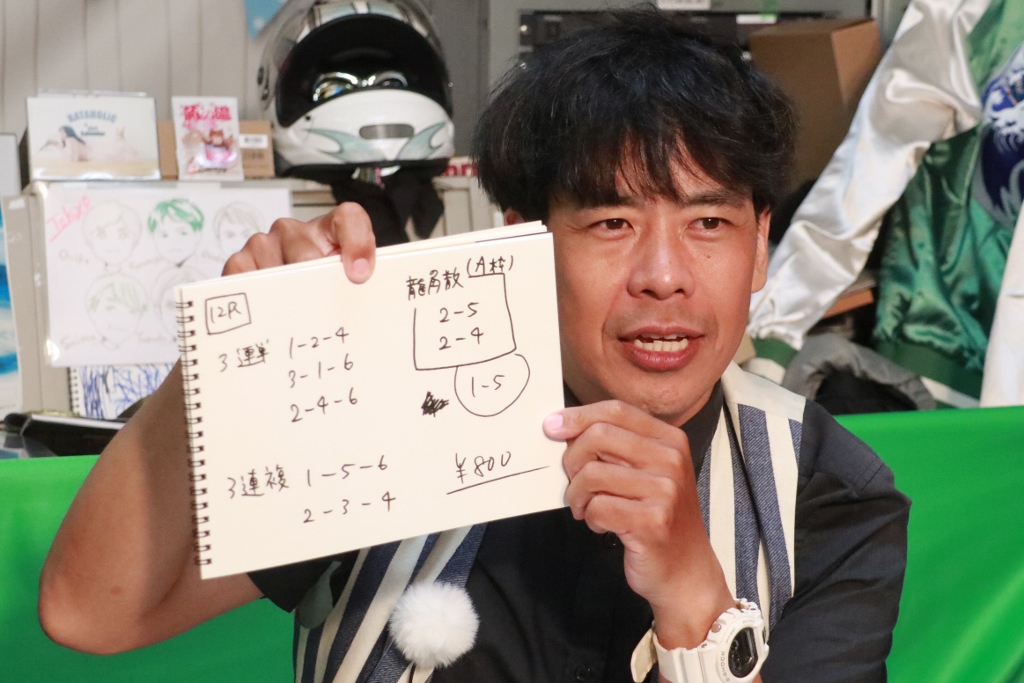 12R
3連単 1-2-4
3-1-6
2-4-6
3連複 1-5-6
2-3-4
龍角散(A枠)
2-5
2-4
1-5
¥800
KATAHOLIC